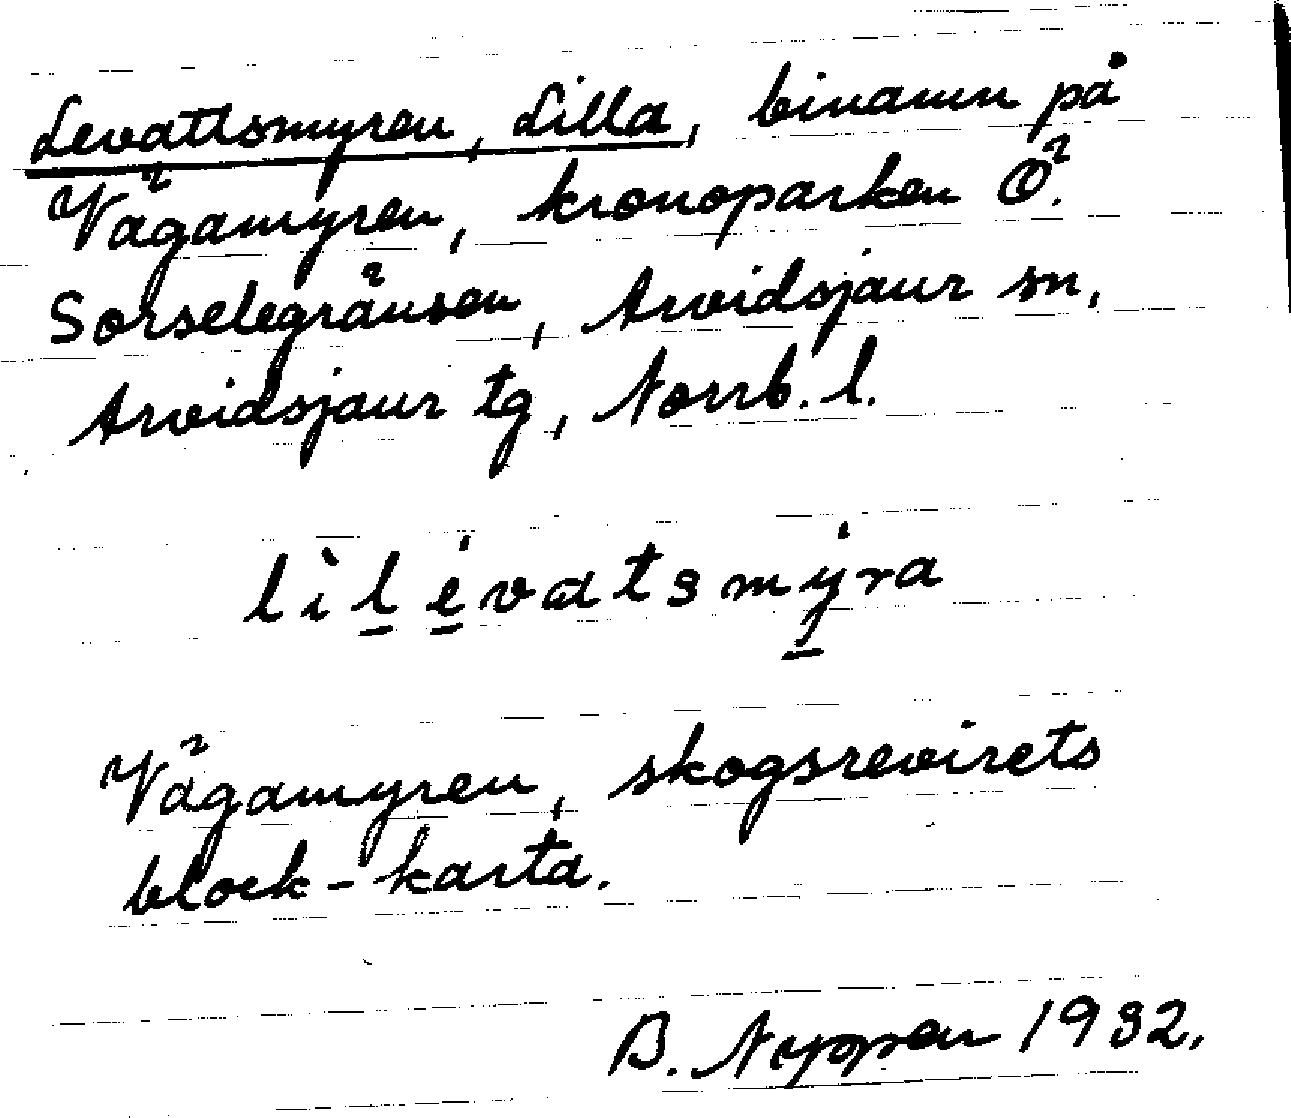 Levattsmyren, Lilla, binamn på
Vägamyren, kronoparken Ö.
Sorselegränsen, Arvidsjaur sn,
Arvidsjaur tg, Norrb. l.
lìlévatsmýra
Vägamyren, skogsrevirets
block-karta.
B. Nyppen 1932.